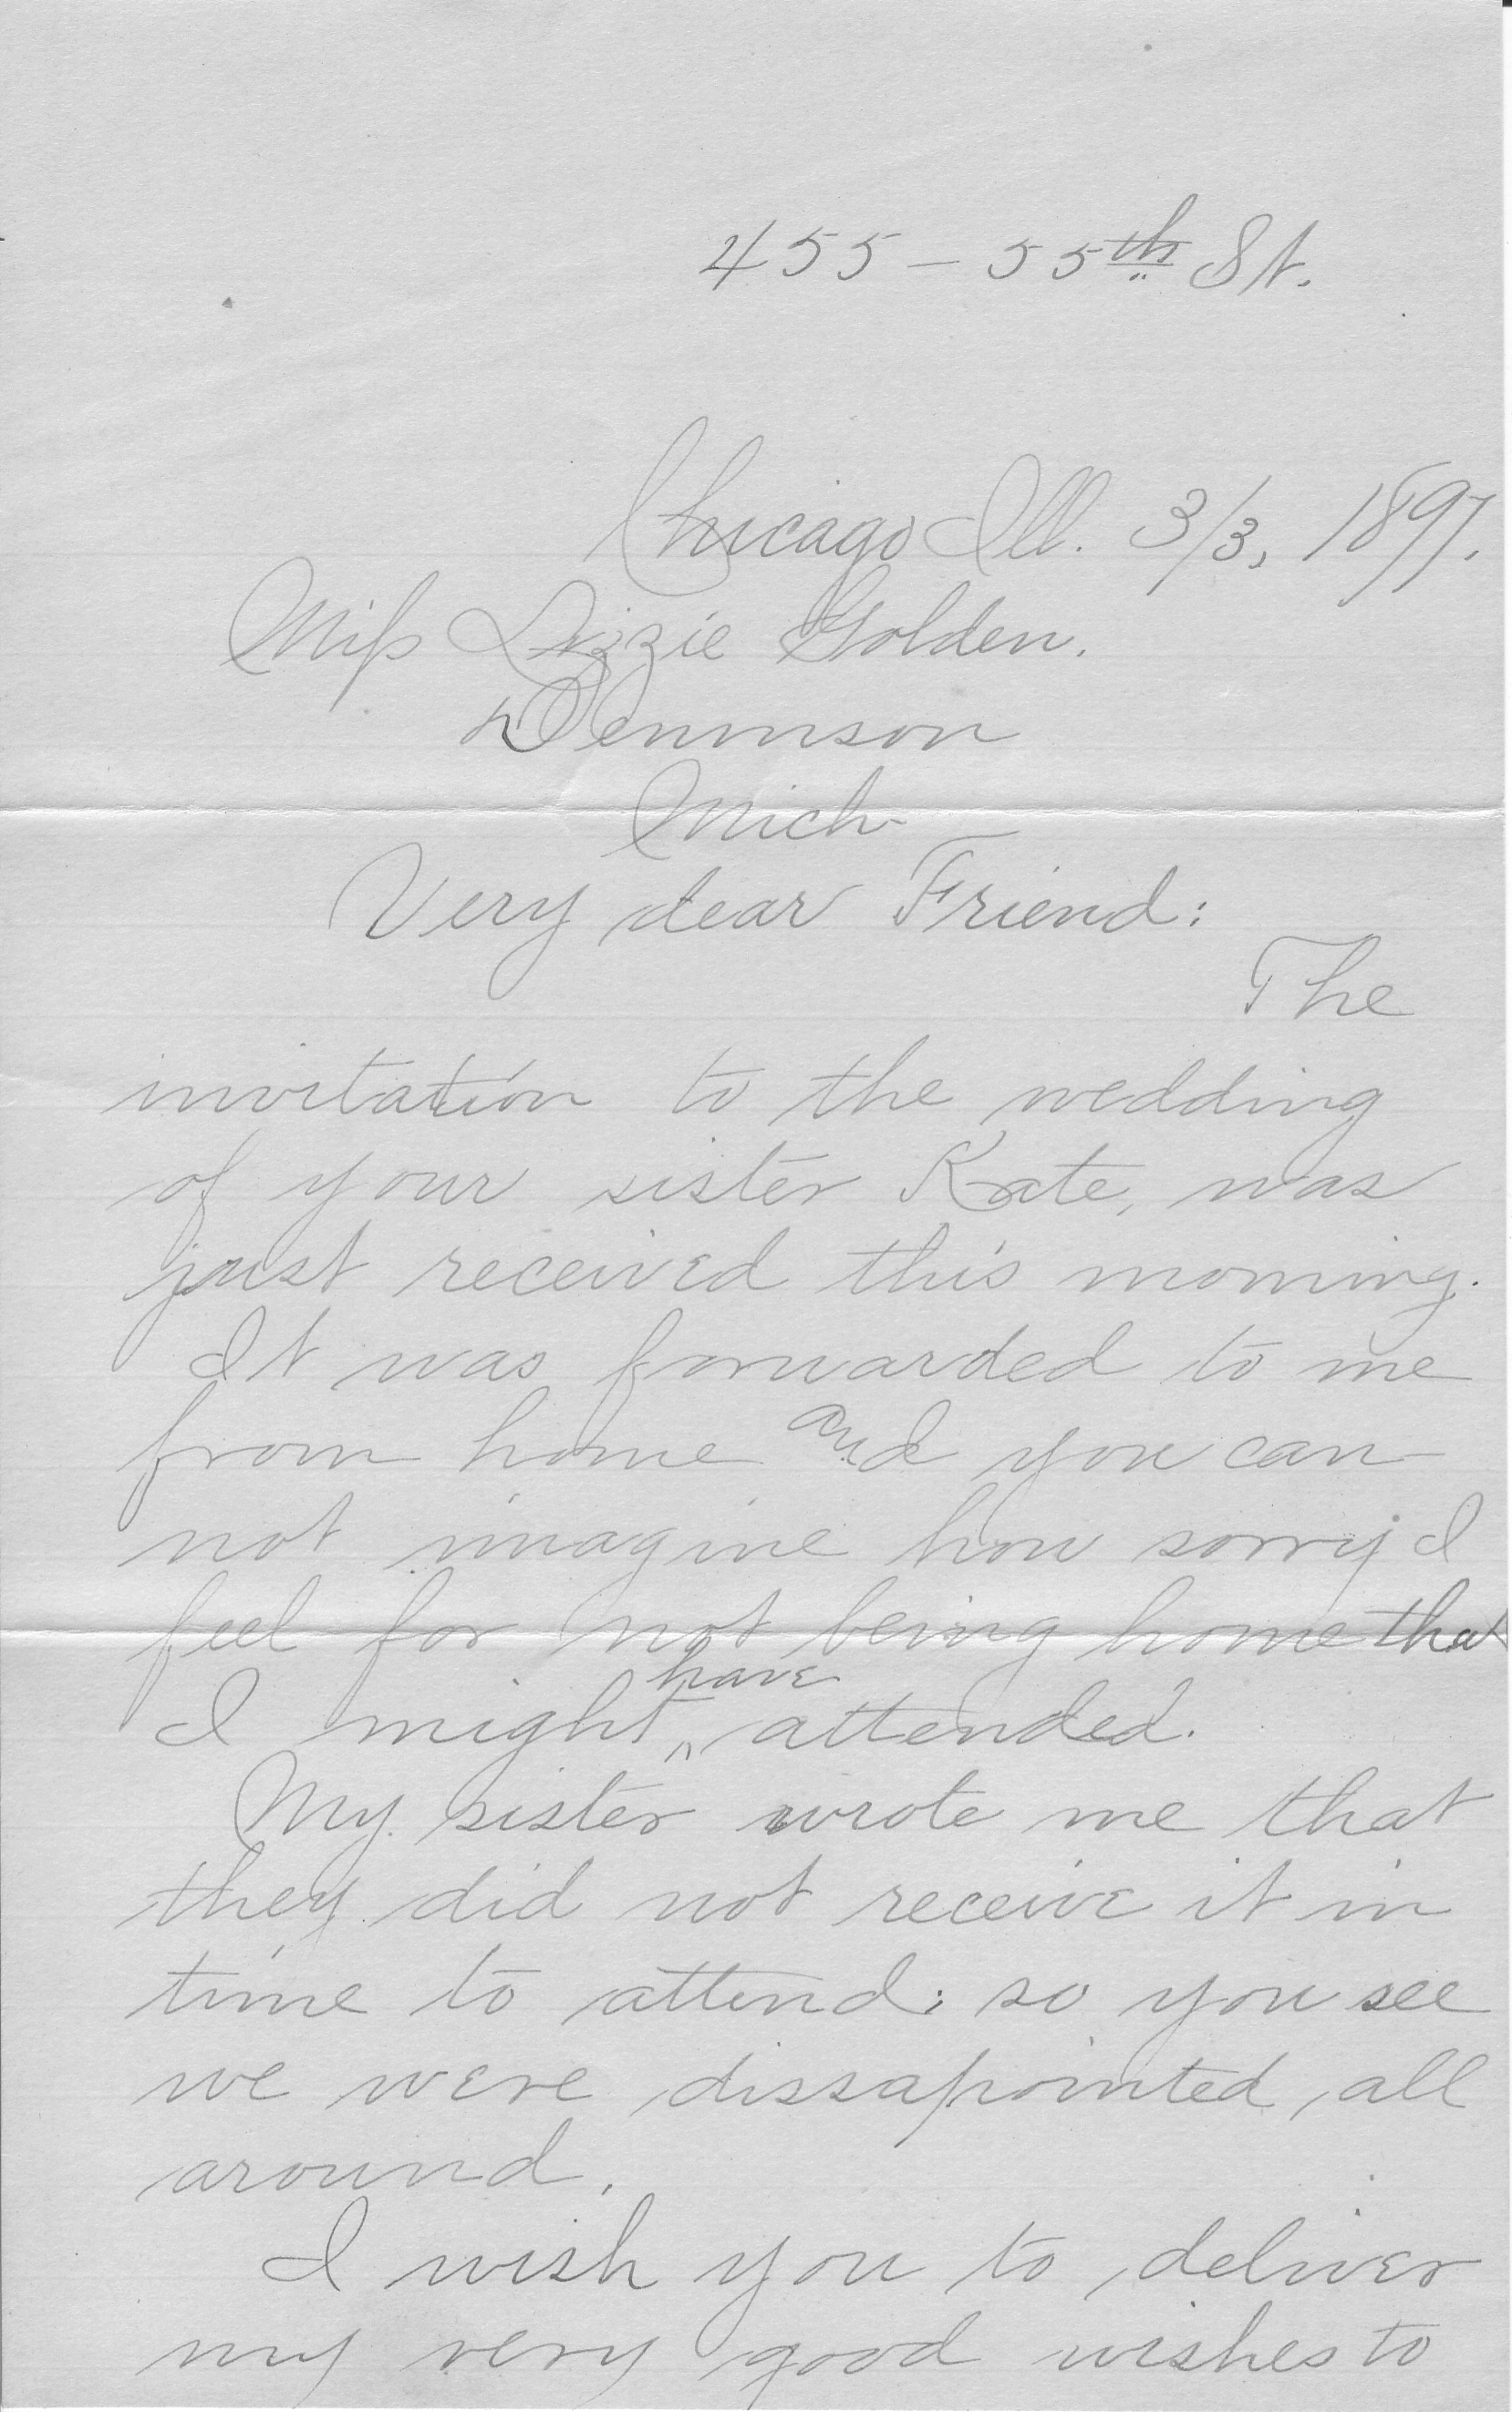 455 – 55th St.
Chicago Ill. 3/3, 1897.
Miss Lizzie Golden.
Dennison
Mich
Very dear Friend:
The
invitation to the wedding
of your sister Kate, was
just received this morning.
It was forwarded to me
from home and you can
not imagine how sorry I
feel for not being home that
I might have attended.
My sister wrote me that
they did not receive it in
time to attend; so you see
we were dissapointed all
around.
I wish you to deliver
my very good wishes to